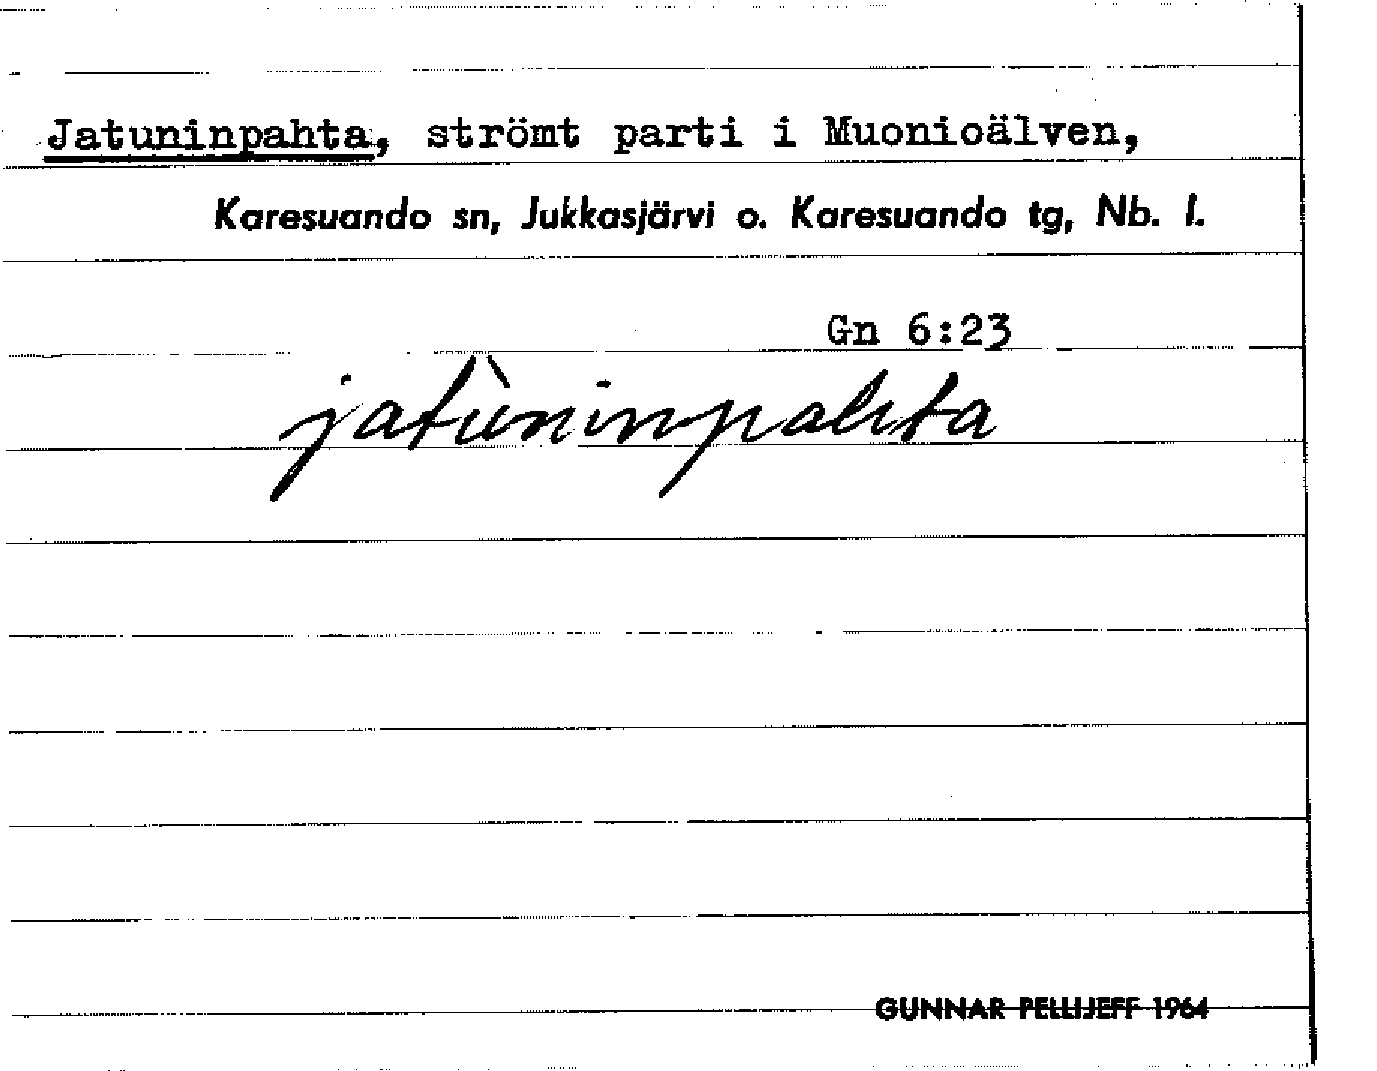 Jatuninpahta, strömt parti i Muonioälven,
Karesuando sn, Jukkasjärvi o. Karesuando tg, Nb. l.
Gn 6:23
jatùninpahta
GUNNAR PELLIJEFF 1964